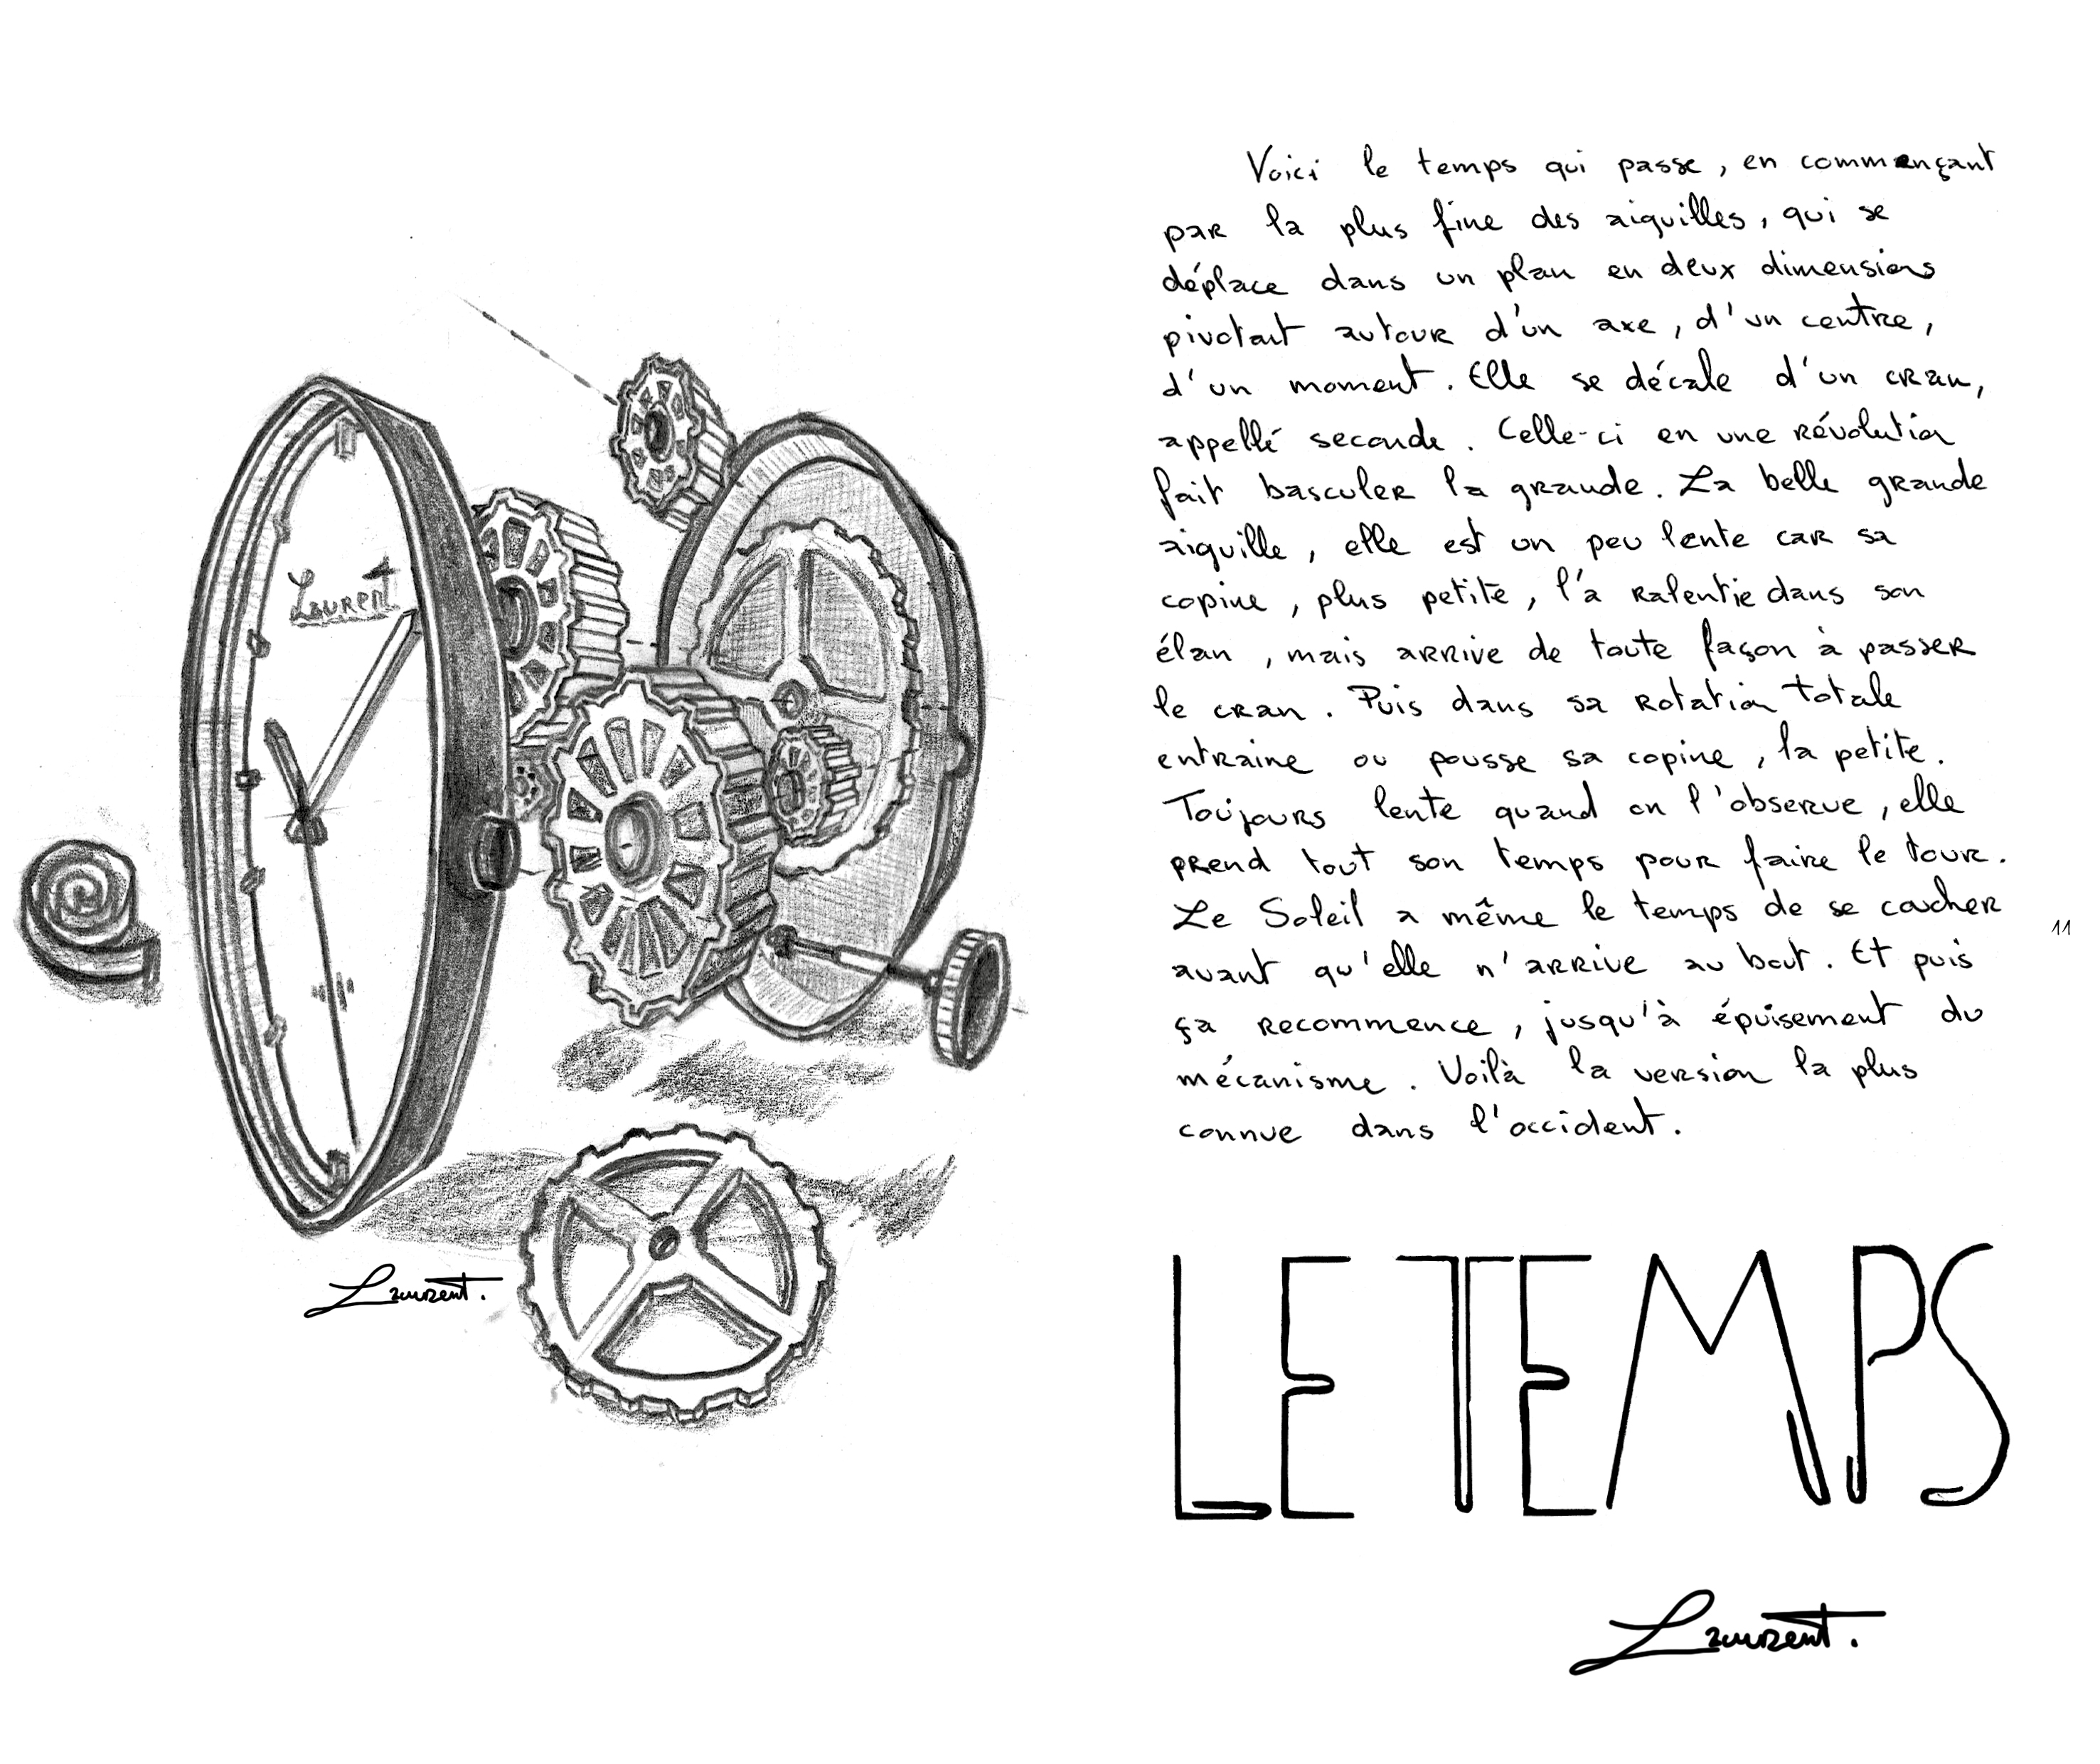 Laurent
Laurent.
Voici le temps qui passe, en commençant
par la plus fine des aiguilles, qui se
déplace dans un plan en deux dimensions
pivotant autour d'un axe, d'un centre,
d'un moment. Elle se décale d'un cran,
appellé seconde. Celle-ci en une révolution
fait basculer la grande. La belle grande
aiguille, elle est un peu lente car sa
copine, plus petite, l'a ralentie dans son
élan, mais arrive de toute façon à passer
le cran. Puis dans sa rotation totale
entraine ou pousse sa copine, la petite.
Toujours lente quand on l'observe, elle
prend tout son temps pour faire le tour.
Le Soleil a même le temps de se coucher
avant qu'elle n'arrive au bout. Et puis
ça recommence, jusqu'à épuisement du
mécanisme. Voilà la version la plus
connue dans l'occident.
11
LE TEMPS
Laurent.